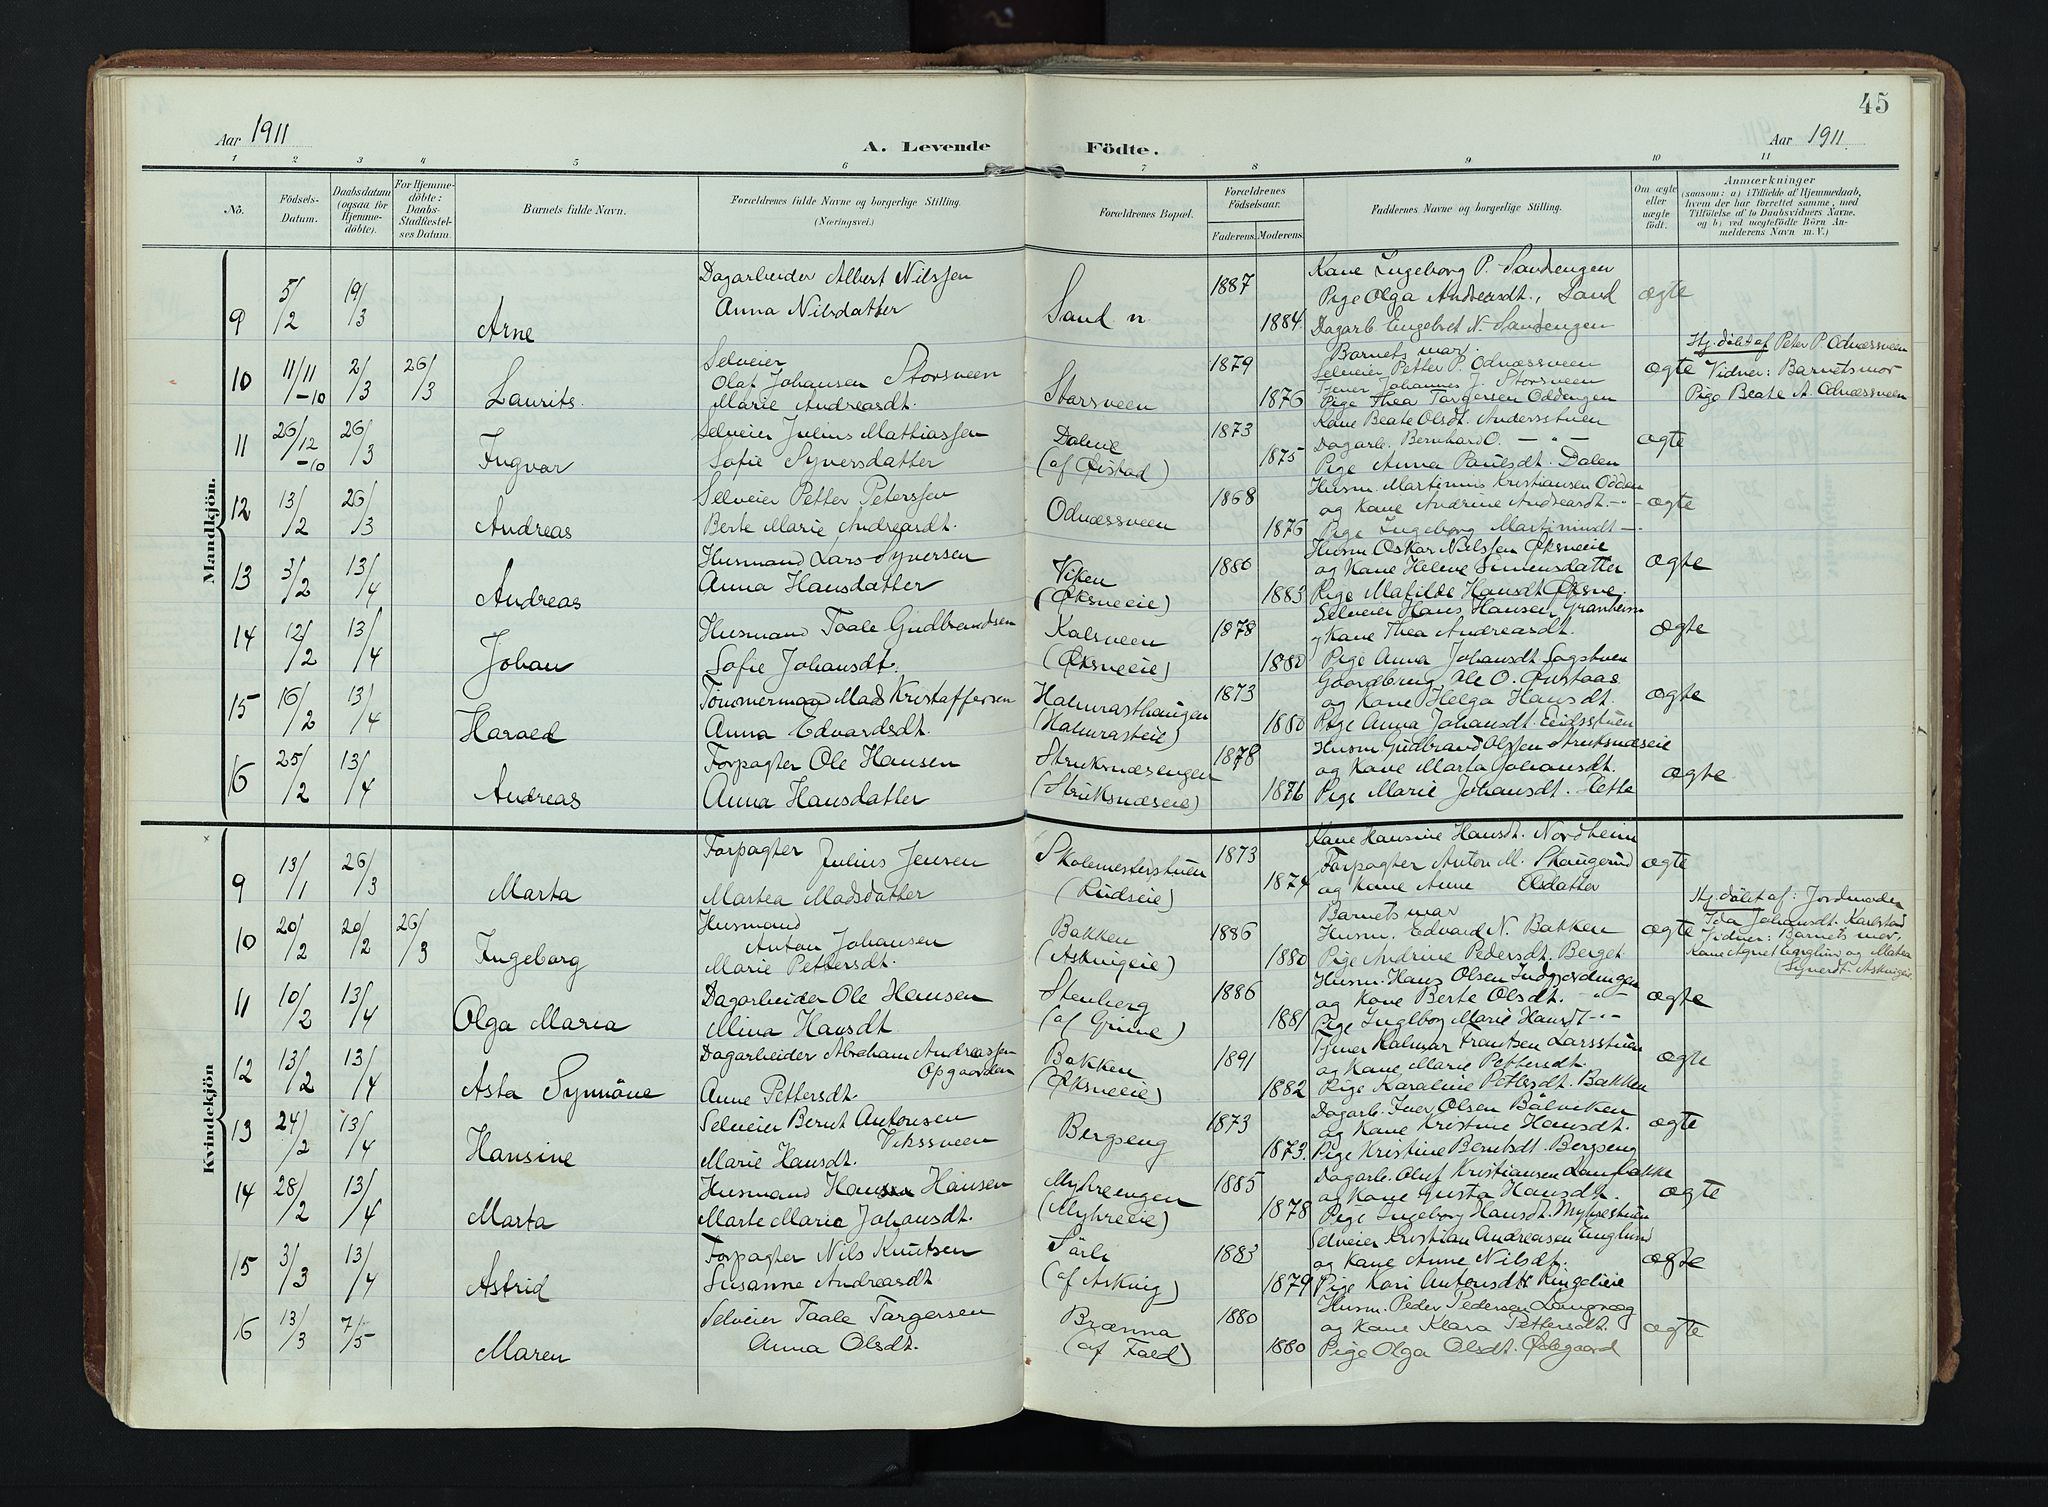 45
Aar 1911
A. Levende
Födte.
Aar 1911.
1 2 3 4 5 6 7 8 9 10 11
No.
Födsels-Datum.
Daabsdatum (ogsaa for Hjemme-döbte).
For Hjemme-döbte: Daabs-Stadfæstel-ses Datum.
Barnets fulde Navn.
Forældrenes fulde Navne og borgerlige Stilling.
(Næringsvei.)
Forældrenes Bopæl.
Forældrenes Födselsaar.
Faderens. Moderens.
Faddernes Navne og borgerlige Stilling.
Om ægte eller uægte födt.
Anmærkninger
(saasom: a) i Tilfælde af Hjemmedaab, hvem der har forrettet samme, med Tilföielse af to Daabsvidners Navne, og b) ved uægtefödte Börn Anmelderens Navn m. V.)
Mandkjön.
9 5/2 19/3 Arne
Dagarbeider Albert Nilssen
Anna Nilsdatter
Sand n.
1887 1884.
Kone Ingeborg P. Sandengen
Pige Olga Andreasdt., Sand
Dagarb. Engebret N. Sandengen
ægte
10 11/11 -10 2/3 26/3 Laurits.
Selveier
Olaf Johansen Storsveen
Marie Andreasdt.
Storsveen
1879 1876
Barnets mor.
Selveier Petter P. Odnæssveen
Tjener Johannes J. Storsveen
Pige Thea Torgersen Oddengen
ægte
Hj. döbt af Peter P. Odnæssveen
Vidner: Barnets mor
Pige Beate A. Odnæssveen
11 26/12 -10 26/3 Ingvar
Selveier Julius Mathiassen
Sofie Syversdatter
Dalene
(af Øistad)
1873 1875
Kone Beate Olsdt. Andersstuen
Dagarb. Bernhard O. — " —
Pige Anna Paulsdt. Dalen
ægte
12 13/2 26/3 Andreas
Selveier Petter Peterssen
Berte Marie Andreasdt.
Odnæssveen
1868 1876
Husm. Martinius Kristiansen Odden
og Kone Andrine Andreasdt. - " -
Pige Ingeborg Martinusdt - " -
ægte
13 3/2 13/4 Andreas
Husmand Lars Syversen
Anna Hansdatter
Viken
(Øksneeie)
1880 1883
Husm Oskar Nilssen Øksneeie
og Kone Helene Simensdatter
Pige Matilde Hansdt Øksne.
ægte
14 12/2 13/4 Johan
Husmand Taale Gudbrandsen
Sofie Johansdt.
Kalsveen
(Øksneeie)
1878 1880
Selveier Hans Hansen Granheim
og Kone Thea Andreasdt.
Pige Anna Johansdt Sagstuen
ægte
15 16/2 13/4 Harald
Tömmermand Mads Kristoffersen
Anna Edvardsdt.
Halmrasthaugen
(Halmrasteie)
1873 1880
og Kone Helga Hansdt.
Pige Anna Johansdt. Eidsstuen
ægte
16 25/2 13/4 Andreas
Forpagter Ole Hansen
Anna Hansdatter
Struksnæsengen
(Struksnæseie)
1878 1876
Husm Gudbrand Olssen Struksnæseie
og Kone Marta Johansdt.
Pige Marie Johansdt. Hette
ægte
Kvindekjön
9 13/1 26/3 Marta
Forpagter Julius Jensen
Martea Madsdatter
Skolemesterstuen
(Rudseie)
1873 1874
Kone Hansine Hansdt. Nordheim
Forpagter Anton M. Skaugerud
og Kone Anne Olsdatter
ægte
10 20/2 20/2 26/3 Ingeborg
Husmand
Anton Johansen
Marie Pettersdt.
Bakken
(Askvigeie)
1886 1880
Barnets mor
Husm. Edvard N. Bakken
Pige Andrine Pedersdt. Berget
ægte
Hj. döbt af: Jordmoder
Ida Johansdt. Karlstad
Vidner: Barnets mor,
11 10/2 13/4 Olga Maria
Dagarbeider Ole Hansen
Mina Hansdt.
Stenberg
(af Grime)
1886 1881
Husm. Hans Olsen Indgjordengen
og Kone Berte Olsdt. - " -
Pige Ingeborg Marie Hansdt - " -
ægte
12 13/2 13/4 Asta Synnöve
Dagarbeider Abraham Andreassen
Opgaarden
Anne Pettersdt.
Bakken
(Øksneeie)
1891 1882
Tjener Halmar Frantsen Larsstuen
og Kone Marie Pettersdt.
Pige Karoline Pettersdt. Bakken
ægte
13 24/2 13/4 Hansine
Selveier Bernt Antonsen
Vikssveen
Marie Hansdt.
Bergseng
1873 1873.
Dagarb. Iver Olsen Bölviken
og Kone Kristine Hansdt.
Pige Kristine Berntsdt. Bergseng
ægte
14 28/2 13/4 Marta
Husmand Hans Hansen
Marte Marie Johansdt.
Myhreengen
(Myhreeie)
1885 1878
Dagarb. Oluf Kristiansen Landbakke
og Kone Gusta Hansdt.
Pige Ingeborg Hansdt. Myhrestuen
ægte
15 3/3 13/4 Astrid
Forpagter Nils Knutsen
Susanne Andreasdt.
Sörli
(af Askvig)
1883 1879
Selveier Kristian Andreasen Englund
og Kone Anne Nilsdt.
Pige Kari Antonsdt. Ringelieie
ægte
16 13/3 7/5 Maren
Selveier Taale Torgersen
Anna Olsdt.
Brænna
(af Fald)
1880 1880
Husm. Peder Pedersen Langvæg
og Kone Klara Pettersdt.
Pige Olga Olsdt. Østegaard
ægte